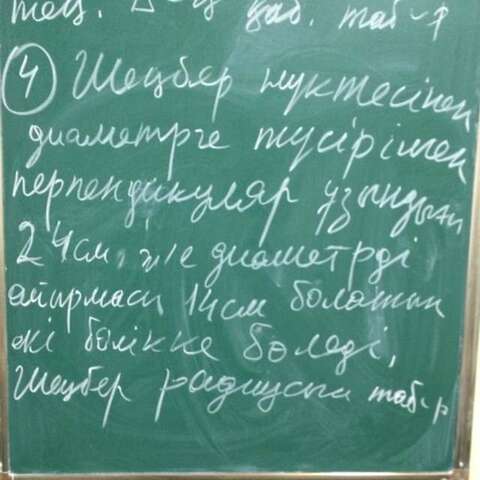 тең. қаб. таб-ң
④ Шеңбер нүктесінен
диаметрге түсірілген
перпендикуляр ұзындығы
24см, ж/е диаметрді
айырмасы 14см болатын
екі бөлікке бөледі,
Шеңбер радиусын таб-р